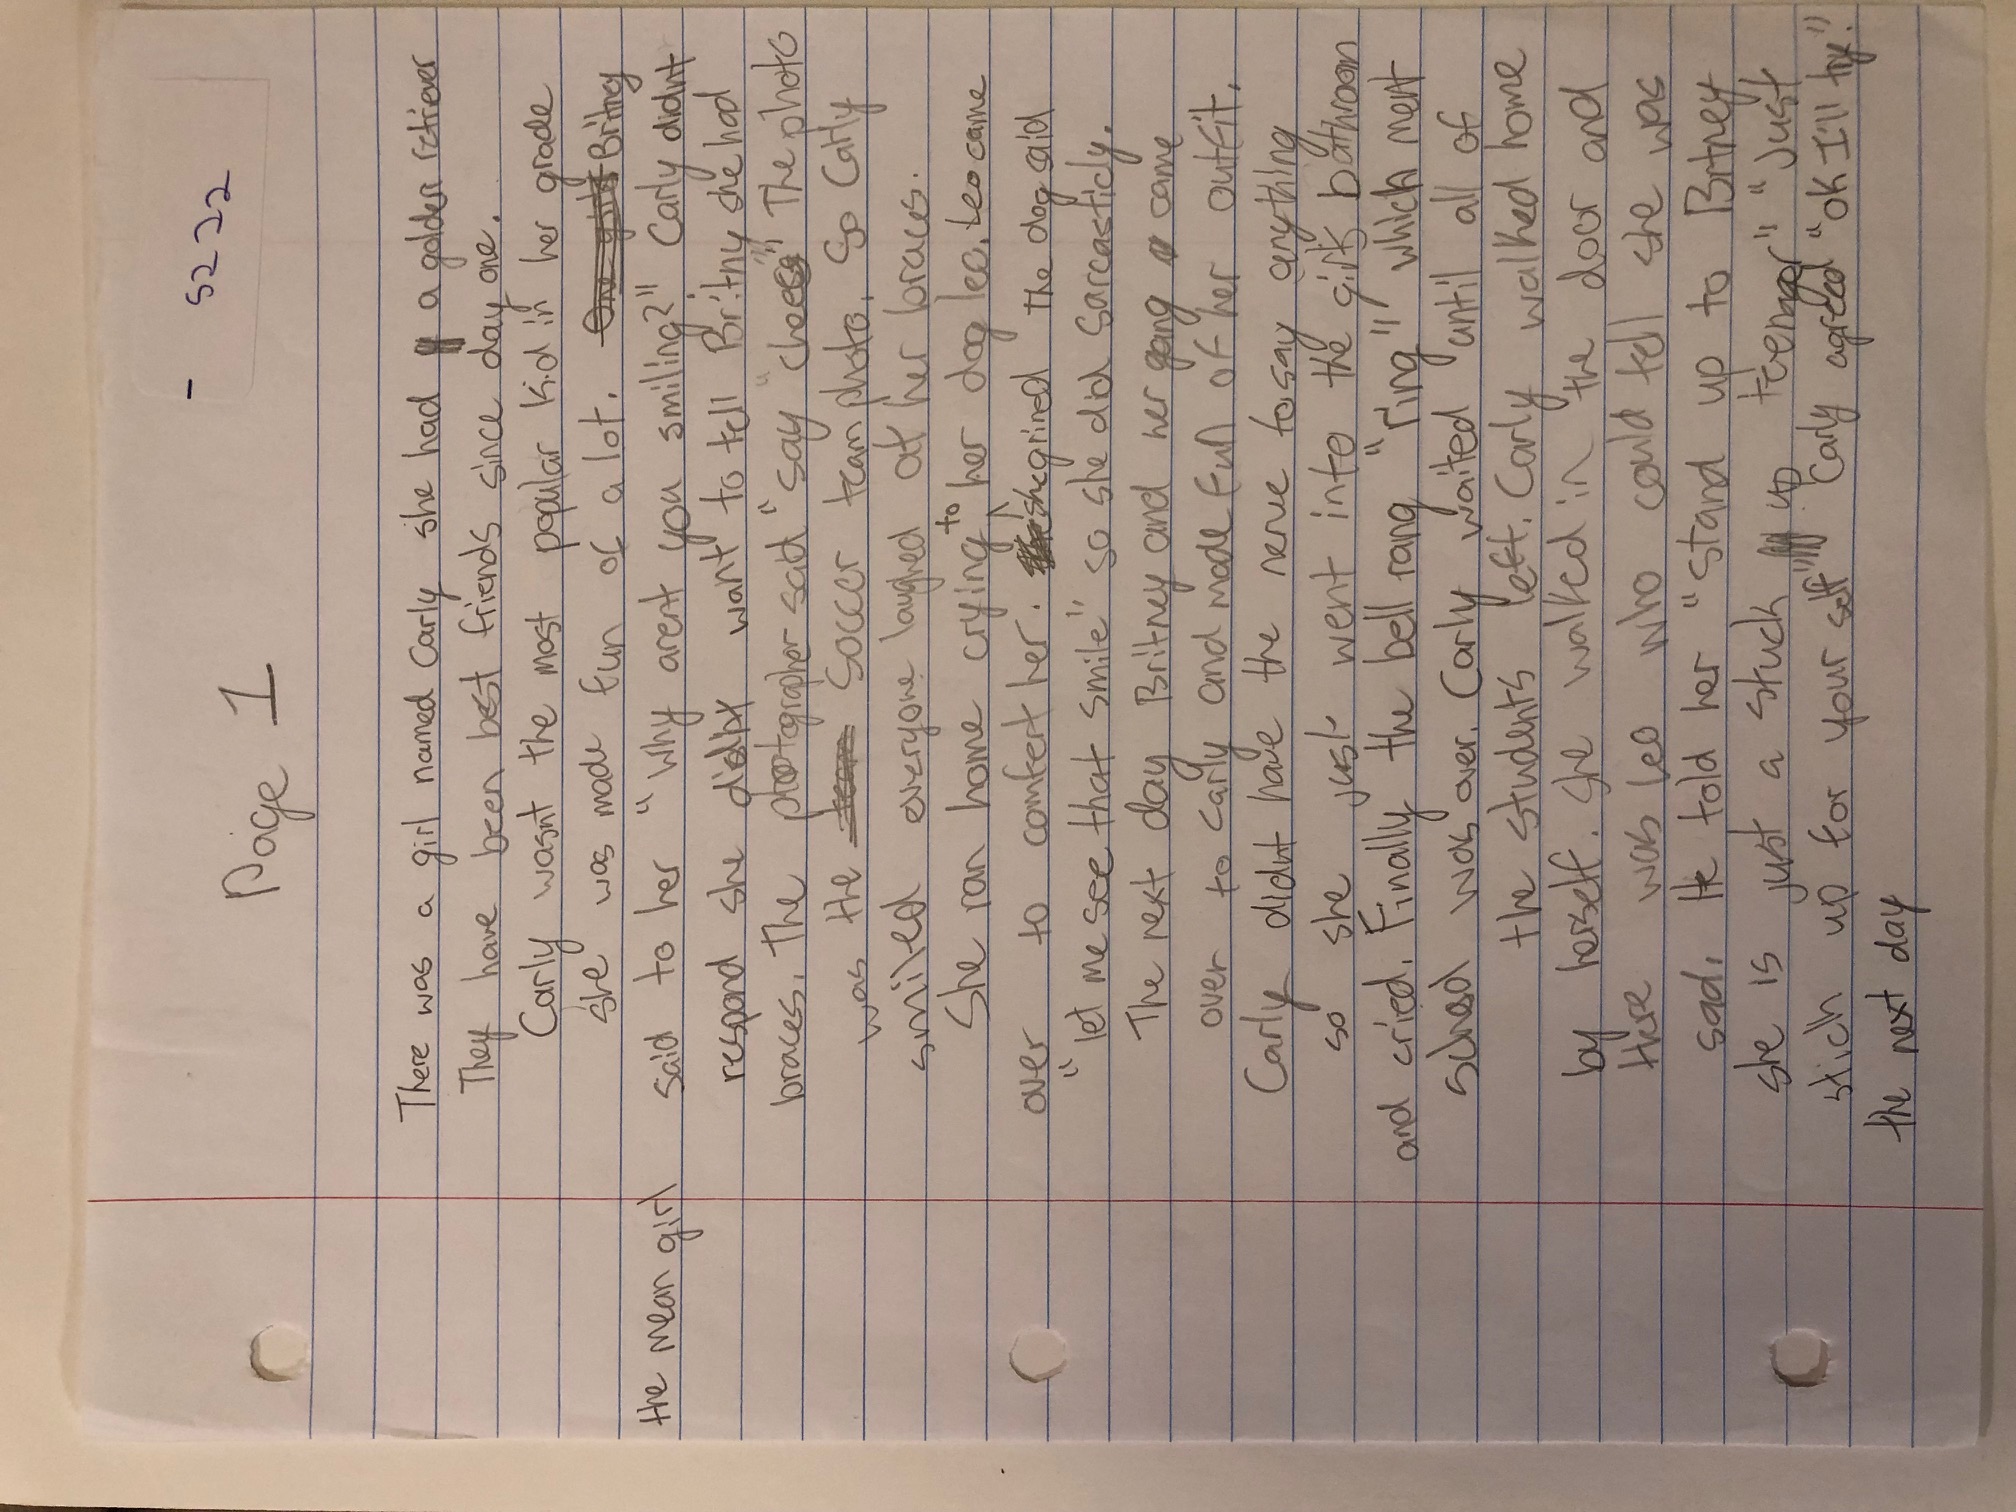 - 5222
Page 1
There was a girl named Carly she had a golden retriever
They have been best friends since day one.
Carly wasnt the most popular kid in her grade
she was made fun of a lot. One girl Britney
the mean girl said to her "Why arent you smiling?" Carly didnt
respond she didnt want to tell Britny she had
braces. The photographer said "say "cheese" The photo
was the team soccer team photo. So Carly
smiled everyone laughed at her braces.
She ran home crying to her dog leo. Leo came
over to comfert her. she grined the dog said
"let me see that smile" so she did sarcasticly.
The next day Britney and her gang came
over to Carly and made fun of her outfit.
Carly didnt have the nerve to say anything
so she just went into the girls bathroom
and cried. Finally the bell rang "ring" which ment
school was over. Carly waited until all of
the students left. Carly walked home
by herself. she walked in the door and
there was leo who could tell she was
sad. He told her "stand up to Britney
she is just a stuck up teenager" "Just
stich up for your self" Carly agreed "ok I'll try."
the next day